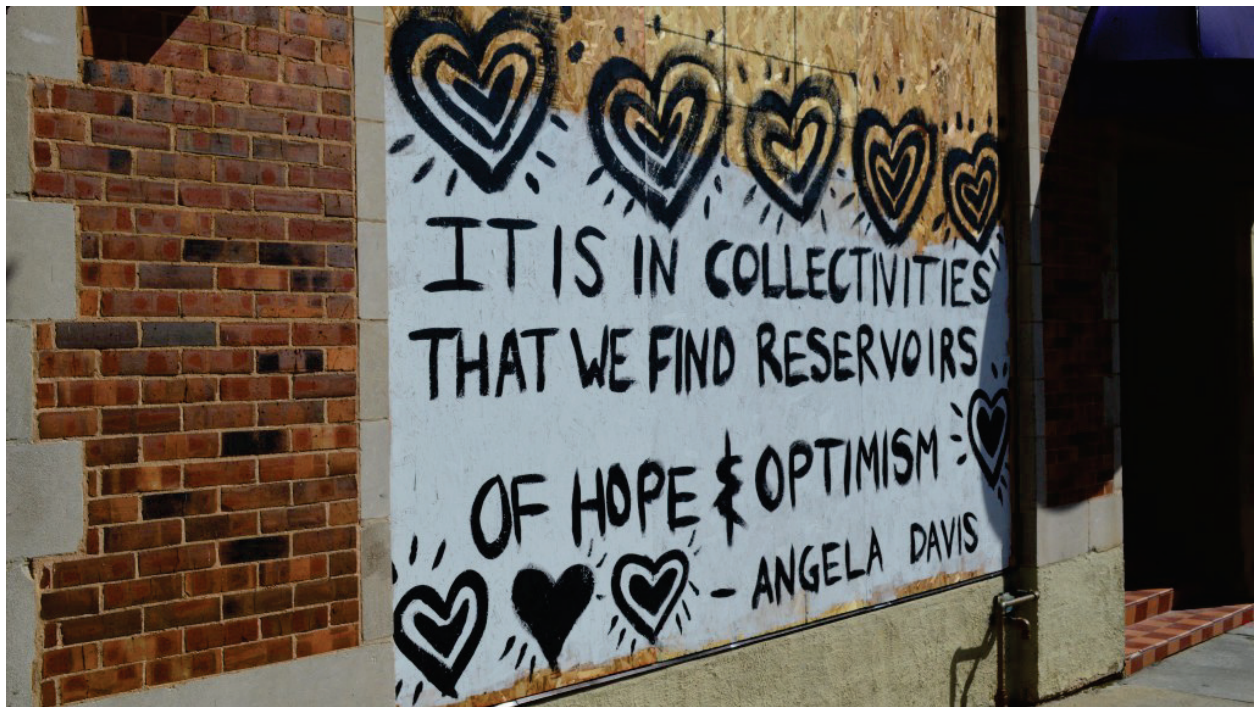 IT IS IN COLLECTIVITIES
THAT WE FIND RESERVOIRS
OF HOPE & OPTIMISM
- ANGELA DAVIS